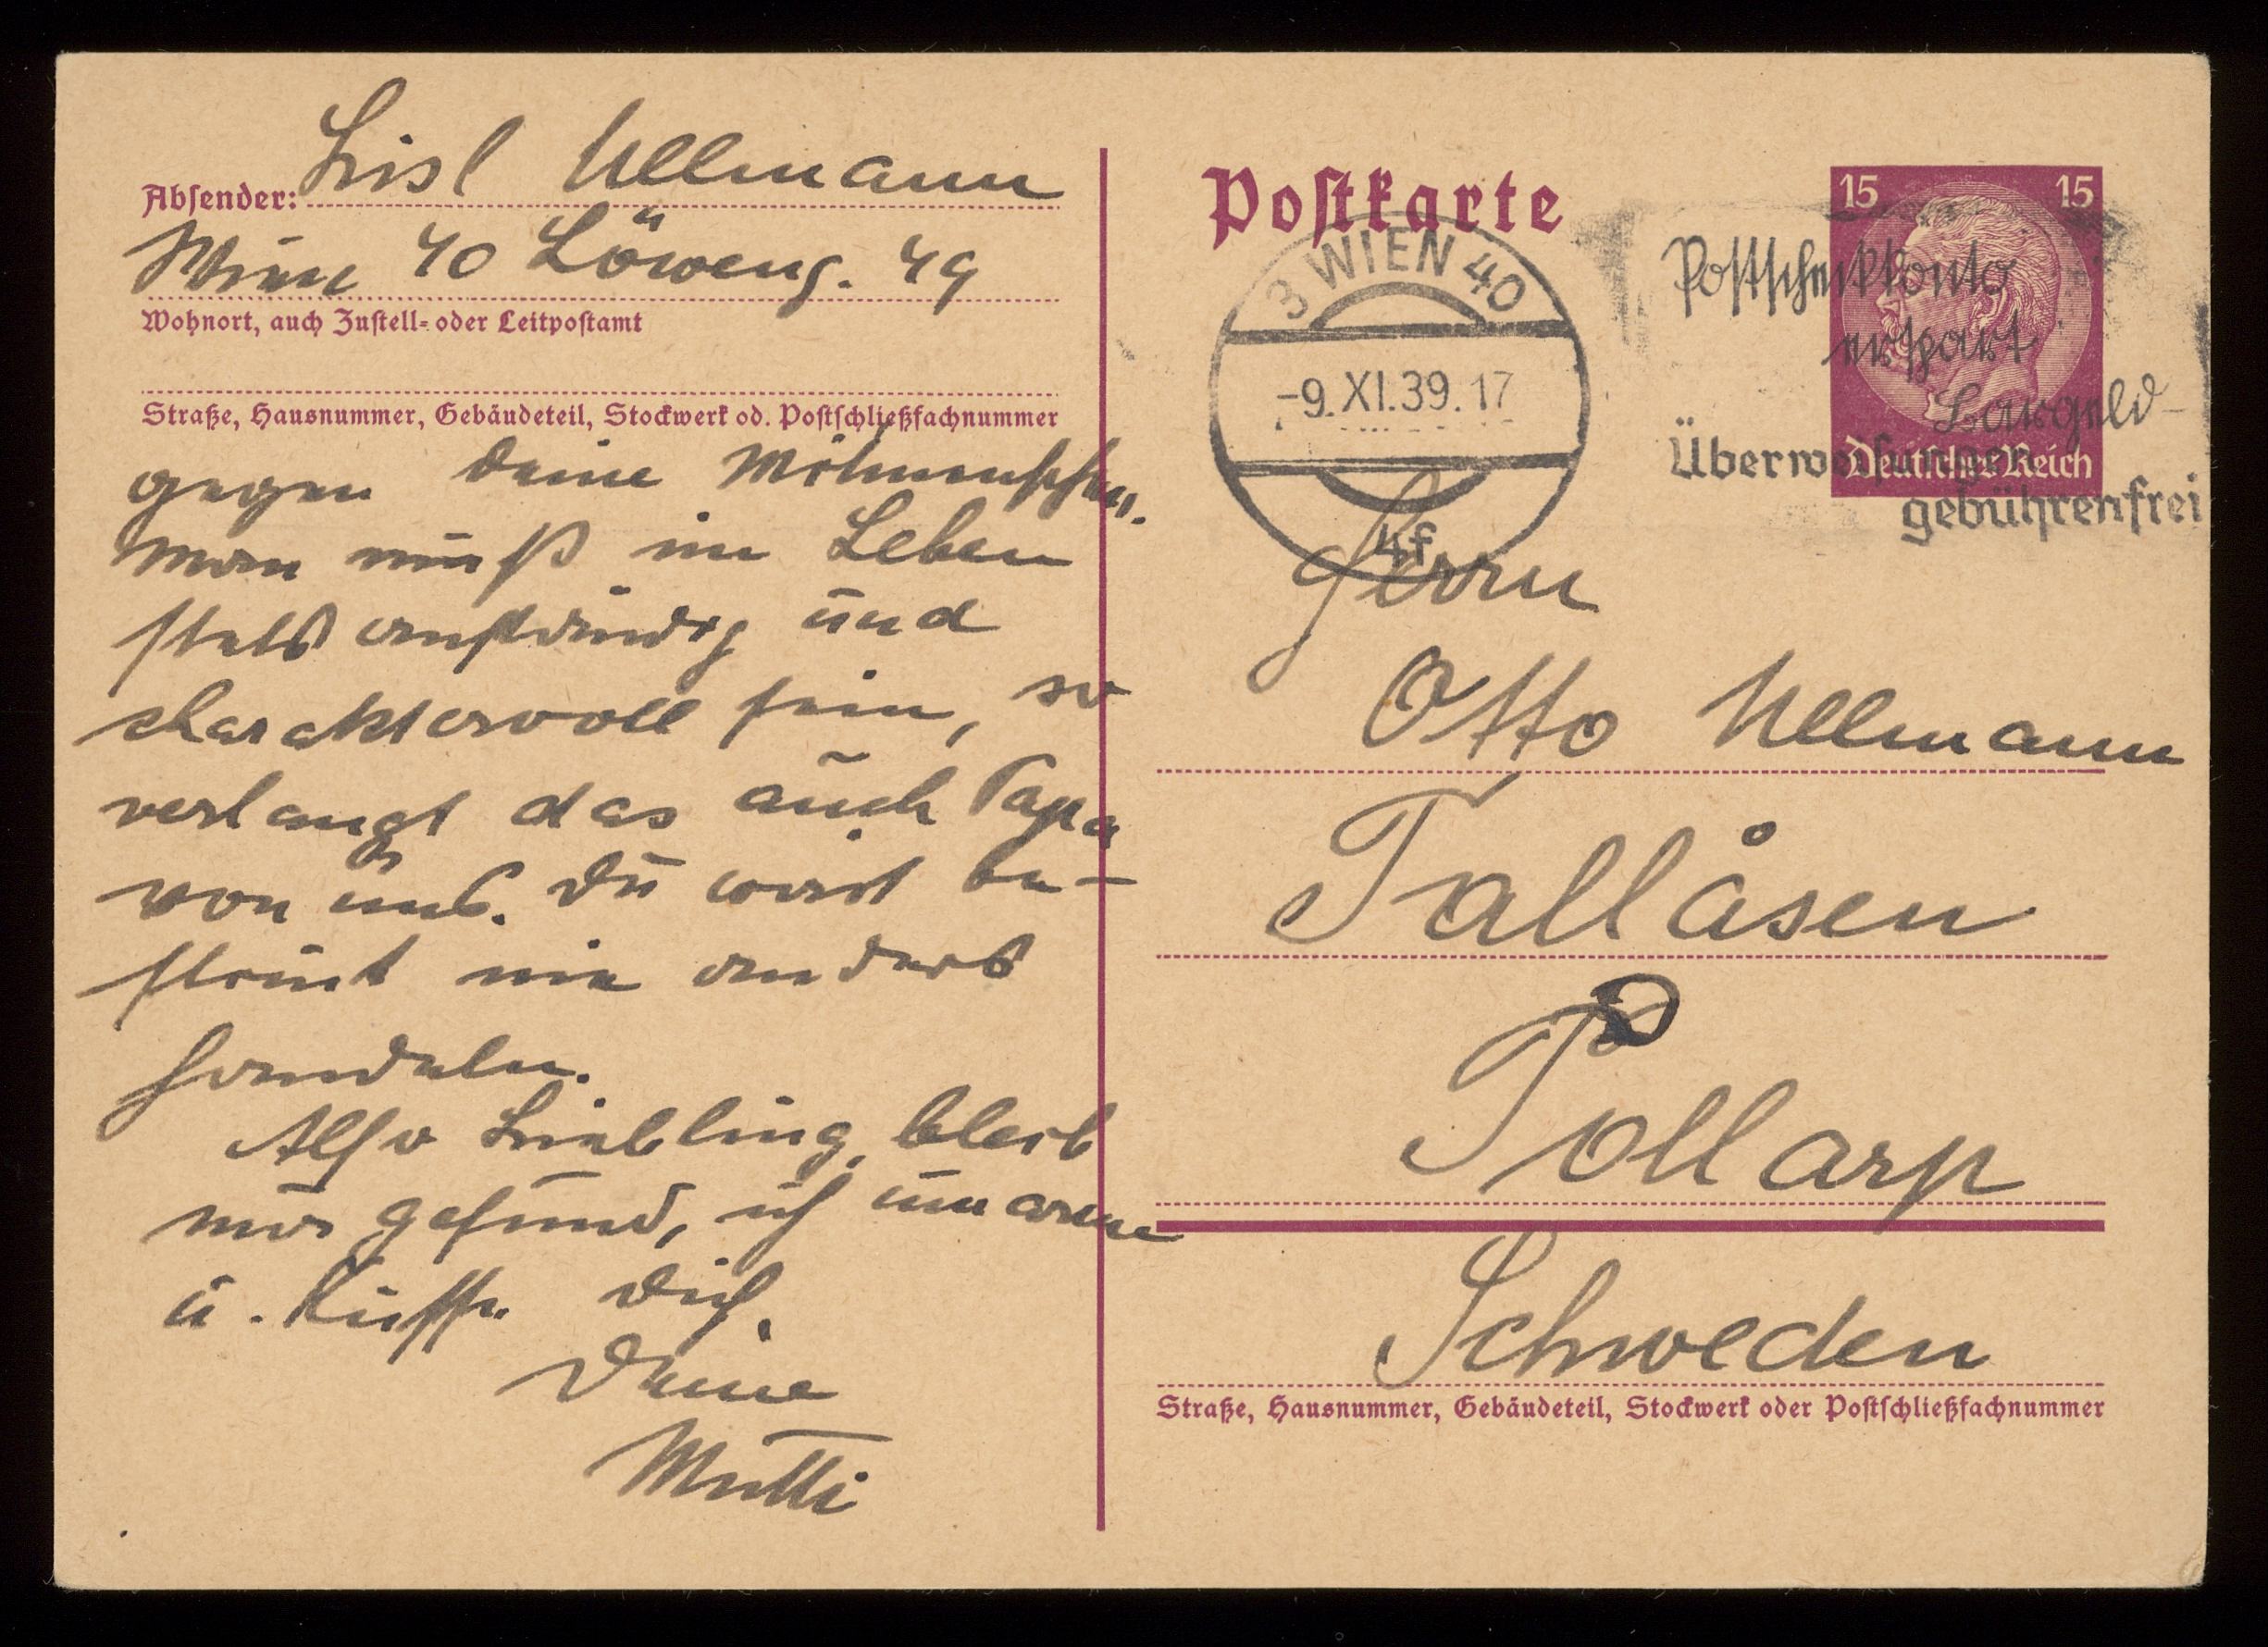 Absender: Lisl Ullmann
Wien 40 Löweng. 49
Wohnort, auch Zustell- oder Leitpostamt
Straße, Hausnummer, Gebäudeteil, Stockwerk od. Postschließfachnummer
gegen deine Mitmenschen.
Man muß im Leben
stets anständig und
charaktervoll sein, so
verlangt das auch Papa
von uns. Du wirst be-
stimmt nie anders
handeln.
Also Liebling, bleib
mir gesund, ich umarme
u. küsse Dich,
Deine
Mutti
Postkarte
3 WIEN 40
-9.XI.39.17
4f
15 15
Deutsches Reich
Postscheckkonto
erspart
Bargeld-
Überweisungen
gebührenfrei
Herrn
Otto Ullmann
Tallåsen
Tollarp
Schweden
Straße, Hausnummer, Gebäudeteil, Stockwerk oder Postschließfachnummer